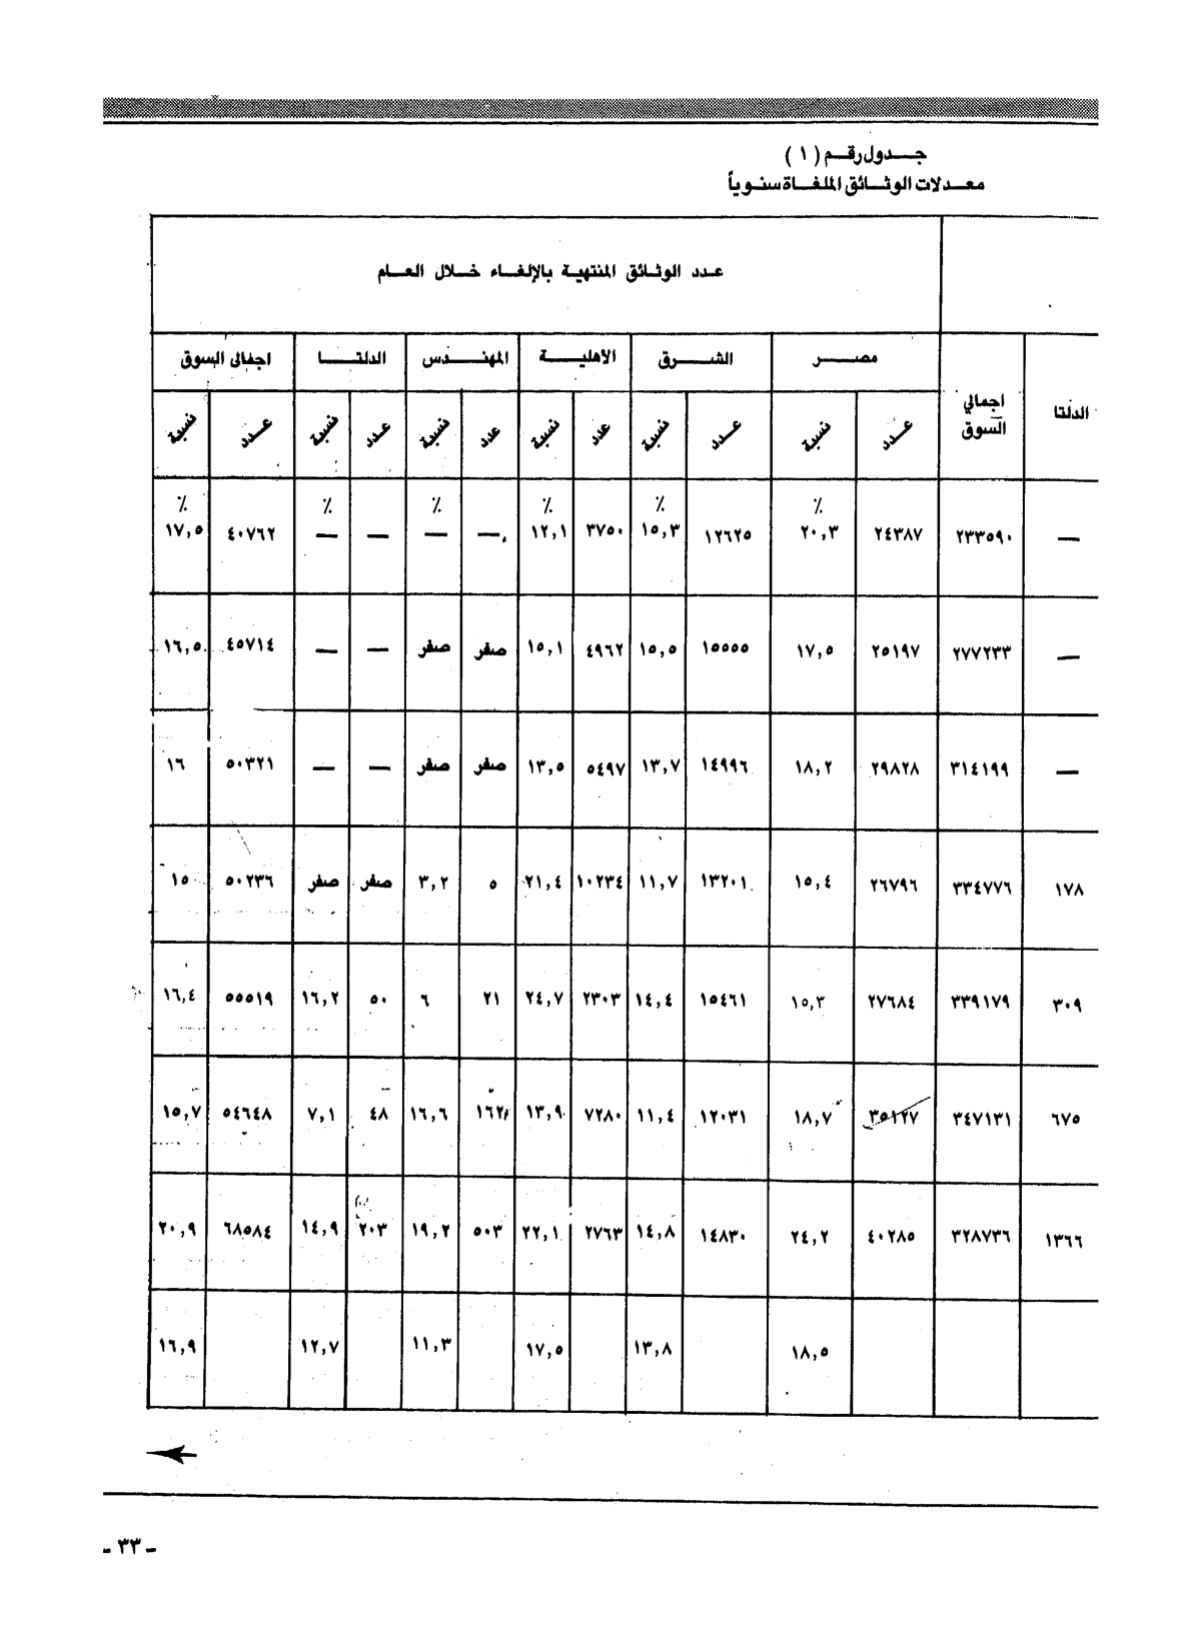 جـــدول رقــم ( ١ )
معــدلات الوثــائق الملغــاة سنــوياً
عـدد الوثــائق المنتهيـة بالإلغــاء خــلال العــام
الدلتا اجمالي السوق مصـــر الشـــرق الأهليـــة المهنـــدس الدلتـــا اجمالى السوق
عــدد نسبة عــدد نسبة عدد نسبة عدد نسبة عدد نسبة عــدد نسبة
٪ ٪ ٪ ٪ ٪ ٪
— ٢٣٣٥٩٠ ٢٤٣٨٧ ٢٠,٣ ١٢٦٢٥ ١٥,٣ ٣٧٥٠ ١٢,١ — — — — ٤٠٧٦٢ ١٧,٥
— ٢٧٧٢٣٣ ٢٥١٩٧ ١٧,٥ ١٥٥٥٥ ١٥,٥ ٤٩٦٢ ١٥,١ صفر صفر — — ٤٥٧١٤ ١٦,٥
— ٣١٤١٩٩ ٢٩٨٢٨ ١٨,٢ ١٤٩٩٦ ١٣,٧ ٥٤٩٧ ١٣,٥ صفر صفر — — ٥٠٣٢١ ١٦
١٧٨ ٣٣٤٧٧٦ ٢٦٧٩٦ ١٥,٤ ١٣٢٠١ ١١,٧ ١٠٢٣٤ ٢١,٤ ٥ ٣,٢ صفر صفر ٥٠٢٣٦ ١٥
٣٠٩ ٣٣٩١٧٩ ٢٧٦٨٤ ١٥,٣ ١٥٤٦١ ١٤,٤ ٢٣٠٣ ٢٤,٧ ٢١ ٦ ٥٠ ١٦,٢ ٥٥٥١٩ ١٦,٤
٦٧٥ ٣٤٧١٣١ ٣٥١٢٧ ١٨,٧ ١٢٠٣١ ١١,٤ ٧٢٨٠ ١٣,٩ ١٦٢ ١٦,٦ ٤٨ ٧,١ ٥٤٦٤٨ ١٥,٧
١٣٦٦ ٣٢٨٧٣٦ ٤٠٢٨٥ ٢٤,٢ ١٤٨٣٠ ١٤,٨ ٢٧٦٣ ٢٢,١ ٥٠٣ ١٩,٢ ٢٠٣ ١٤,٩ ٦٨٥٨٤ ٢٠,٩
١٨,٥ ١٣,٨ ١٧,٥ ١١,٣ ١٢,٧ ١٦,٩
- ٣٣ -